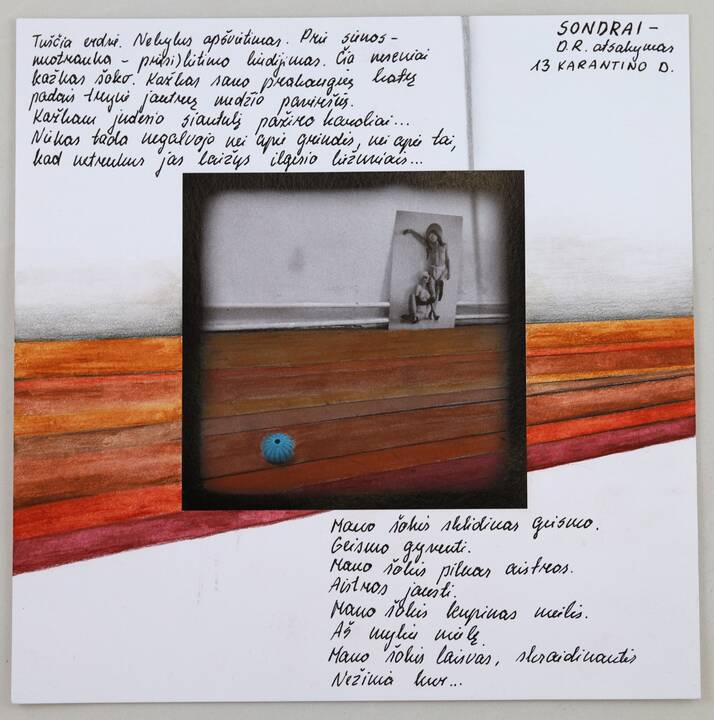 Tuščia erdvė. Nebylus apšvietimas. Prie sienos -
nuotrauka - pri(si)lietimo liudijimas. Čia neseniai
kažkas šoko. Kažkas savo prakaituotų
padais trynė jautrų medžio paviršių.
Kažkam judesio siautulį pažiro karoliai...
Niekas tada negalvojo nei apie grindis, nei apie tai,
kad netrukus jas laižys ilgesio liežuviais...
SONDRAI -
D.R. atsakymas
13 KARANTINO D.
Mano šokis sklidinas geismo.
Geismo gyventi.
Mano šokis pilnas aistros.
Aistros jausti.
Mano šokis kupinas meilės.
Aš myliu meilę
Mano šokis laisvas, skraidinantis
Nežinia kur...